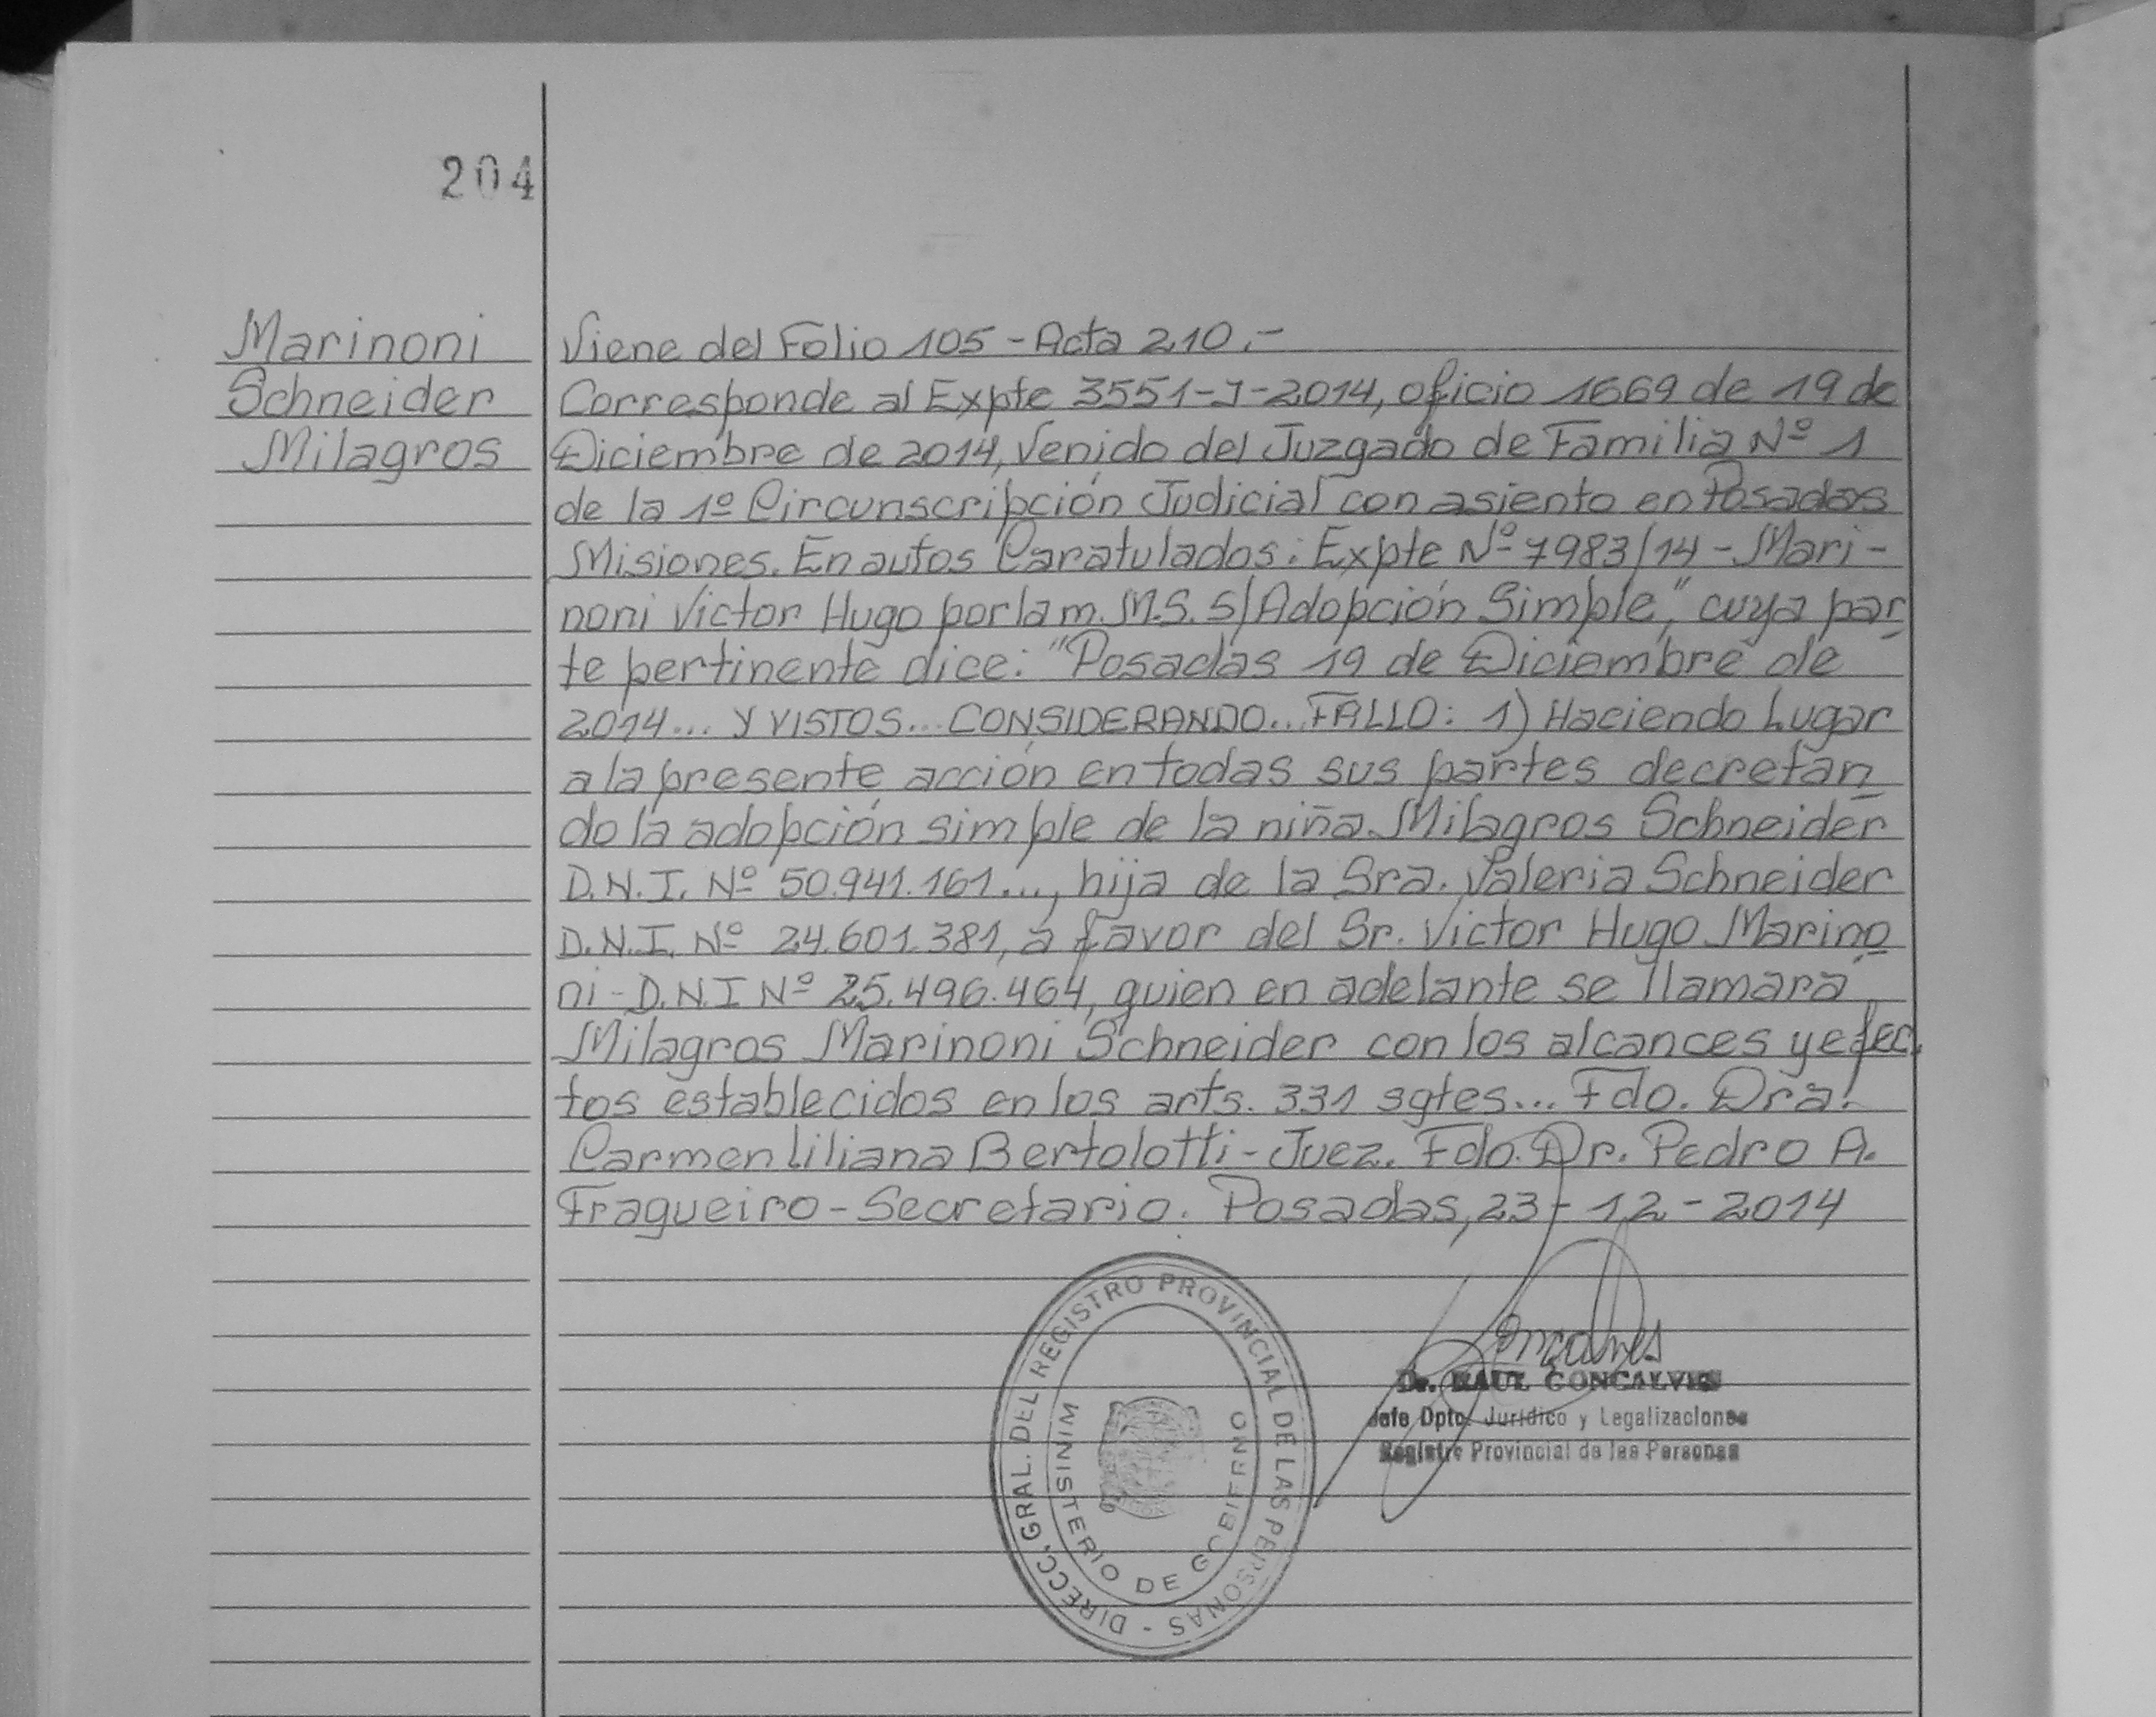 204
Marinoni
Schneider
Milagros
Viene del Folio 105 - Acta 210.-
Corresponde al Expte 3551-J-2014, oficio 1669 de 19 de
Diciembre de 2014, Venido del Juzgado de Familia Nº 1
de la 1º Circunscripción Judicial con asiento en Posadas
Misiones. En autos Caratulados: Expte Nº 7983/14 - Mari-
noni Victor Hugo por la m. M.S. S/Adopción Simple", cuya par
te pertinente dice: "Posadas 19 de Diciembre de
2014... Y VISTOS... CONSIDERANDO... FALLO: 1) Haciendo Lugar
a la presente acción en todas sus partes decretan
do la adopción simple de la niña Milagros Schneider
D.N.I. Nº 50.941.161..., hija de la Sra. Valeria Schneider
D.N.I. Nº 24.601.381, a favor del Sr. Victor Hugo Marino
ni - D.N.I Nº 25.496.464, quien en adelante se llamará
Milagros Marinoni Schneider con los alcances y efec
tos establecidos en los arts. 331 sgtes... Fdo. Dra.
Carmen Liliana Bertolotti - Juez. Fdo. Dr. Pedro A.
Fragueiro - Secretario. Posadas, 23-12-2014
DIRECC. GRAL. DEL REGISTRO PROVINCIAL DE LAS PERSONAS -
MINISTERIO DE GOBIERNO
Dr. RAUL GONCALVES
Jefe Dpto. Jurídico y Legalizaciones
Registro Provincial de las Personas